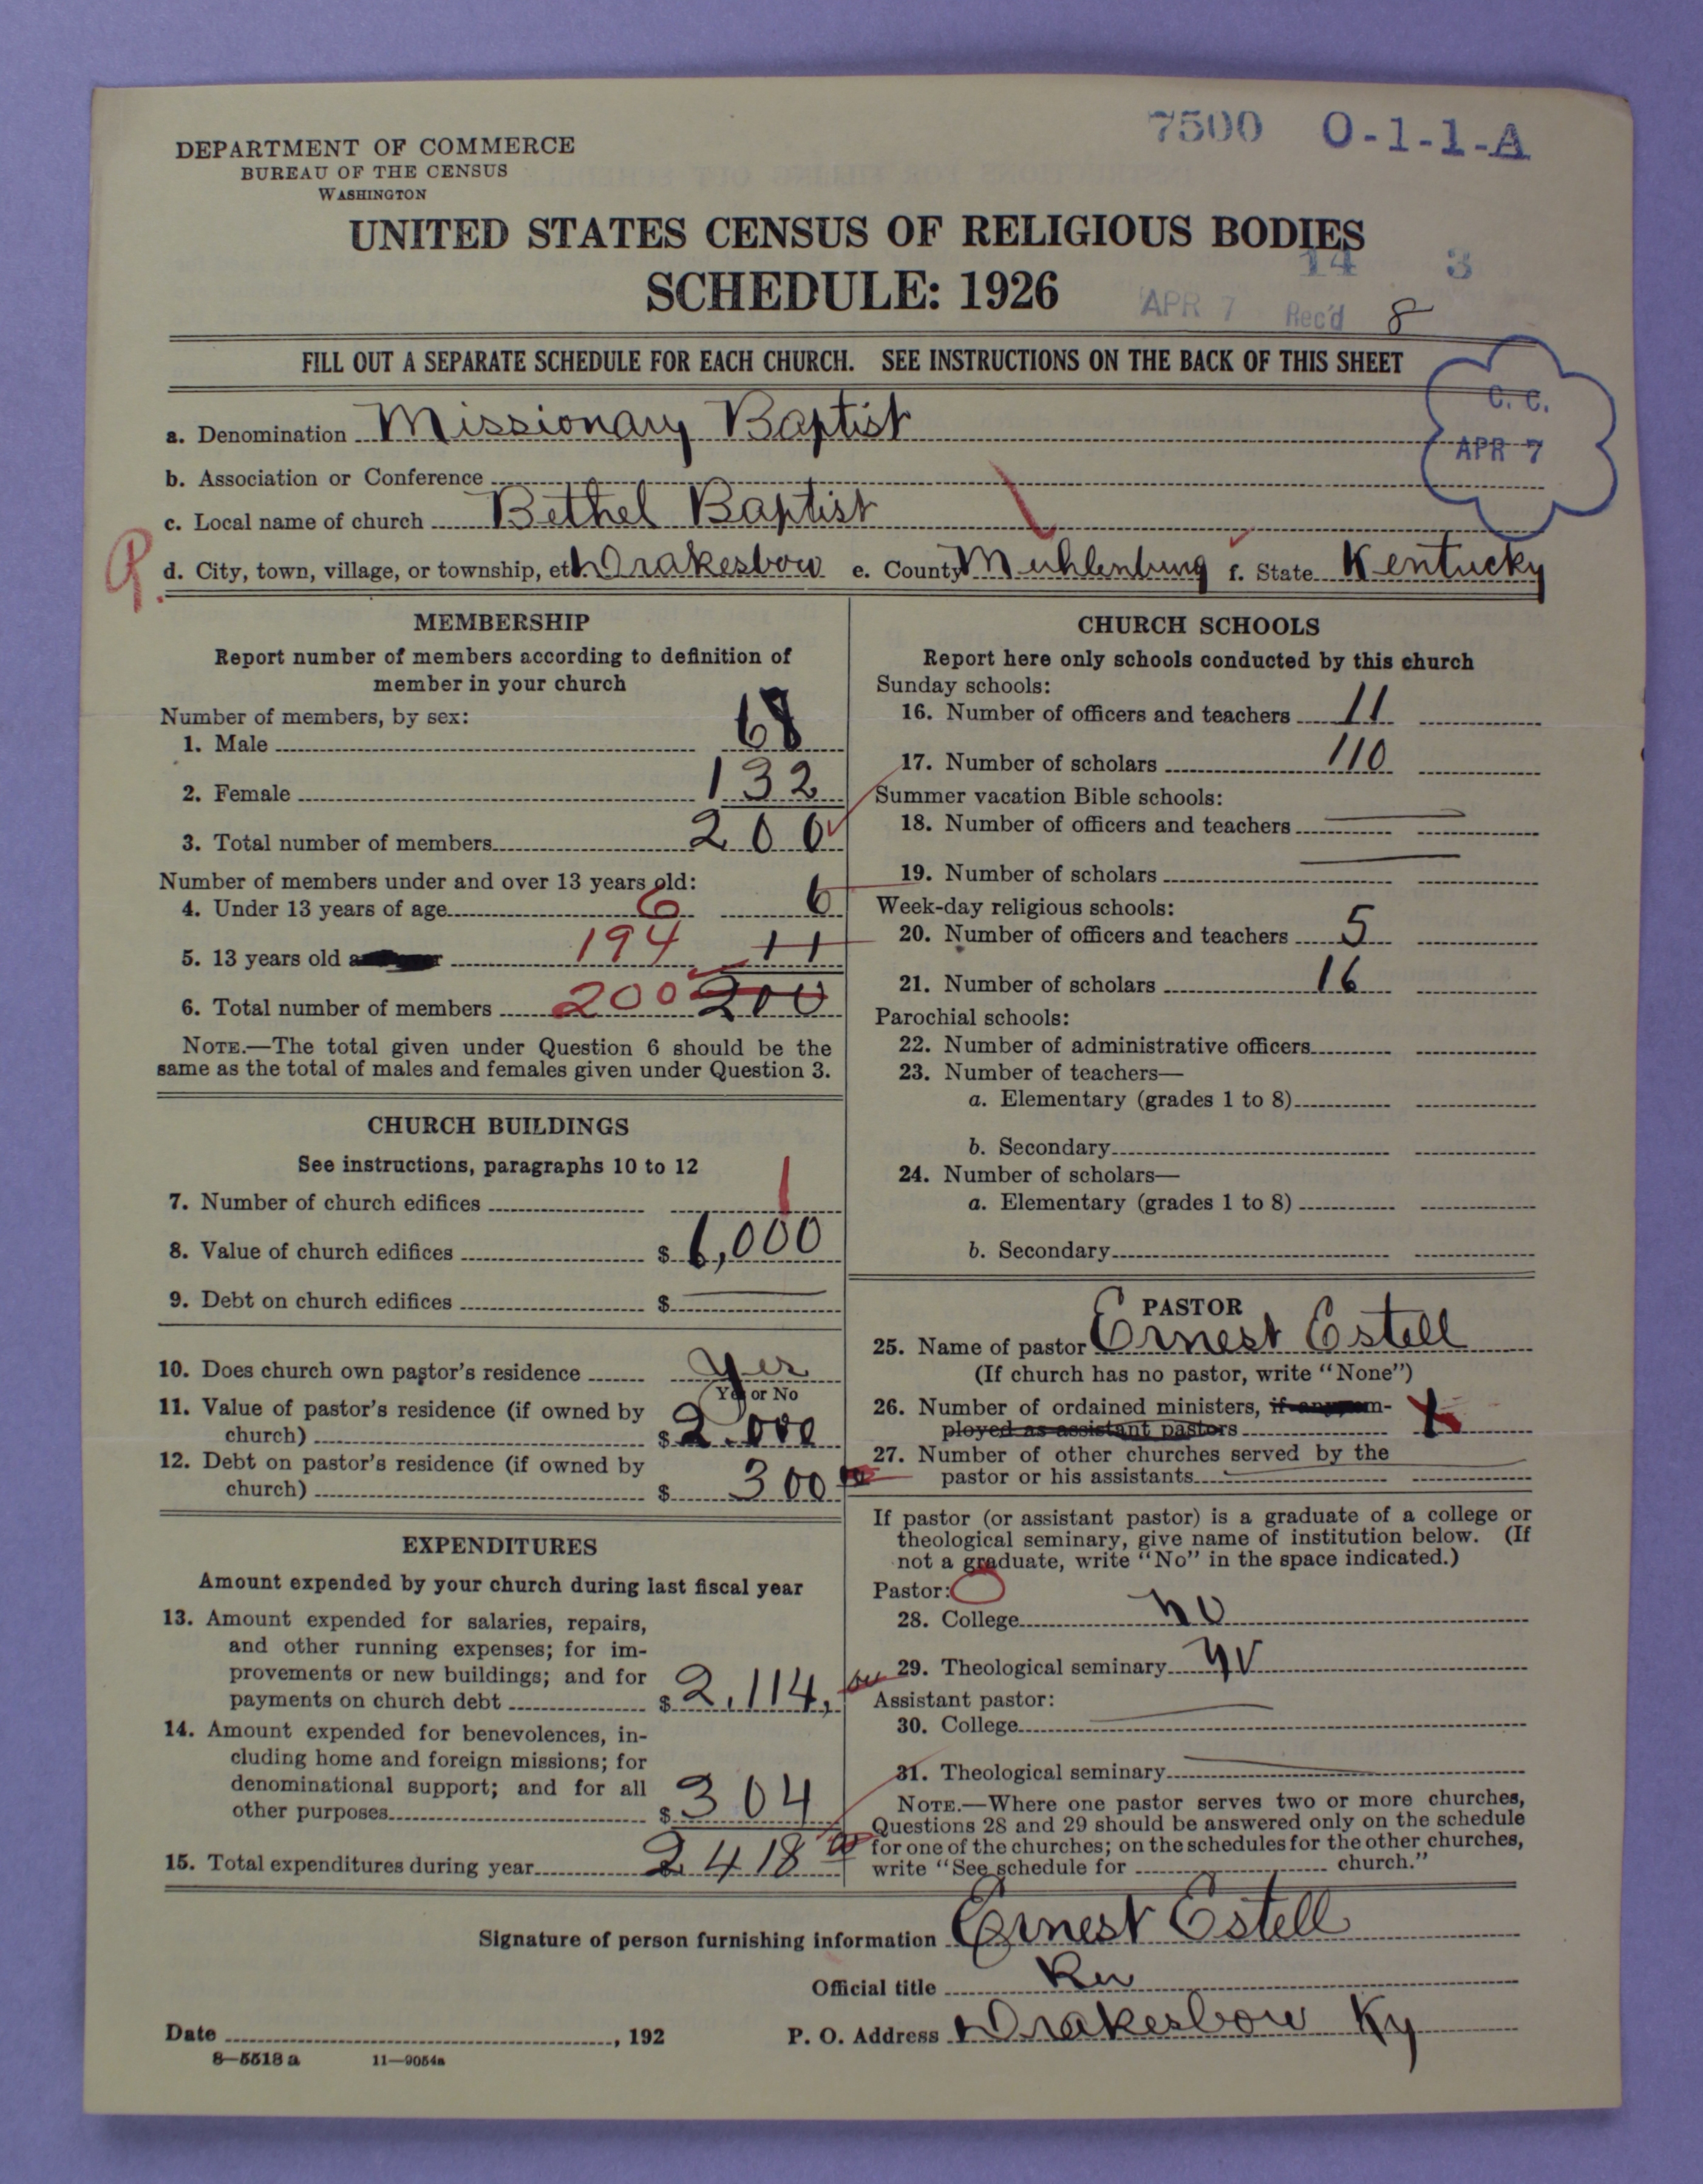 7500 O-1-1-A
DEPARTMENT OF COMMERCE
BUREAU OF THE CENSUS
WASHINGTON
UNITED STATES CENSUS OF RELIGIOUS BODIES
14 3
SCHEDULE: 1926
APR 7 Rec'd 8
FILL OUT A SEPARATE SCHEDULE FOR EACH CHURCH. SEE INSTRUCTIONS ON THE BACK OF THIS SHEET
C. C.
APR 7
a. Denomination Missionary Baptist
b. Association or Conference
c. Local name of church Bethel Baptist
d. City, town, village, or township, etc. Drakesboro e. County Muhlenburg f. State Kentucky
MEMBERSHIP
Report number of members according to definition of
member in your church
Number of members, by sex:
1. Male 68
2. Female 132
3. Total number of members 200
Number of members under and over 13 years old:
4. Under 13 years of age 6 6
5. 13 years old 194 11
6. Total number of members 200 200
NOTE.—The total given under Question 6 should be the
same as the total of males and females given under Question 3.
CHURCH BUILDINGS
See instructions, paragraphs 10 to 12
7. Number of church edifices 1
8. Value of church edifices $ 6,000
9. Debt on church edifices $
10. Does church own pastor's residence Yes
Yes or No
11. Value of pastor's residence (if owned by
church) $ 2.000
12. Debt on pastor's residence (if owned by
church) $ 300
EXPENDITURES
Amount expended by your church during last fiscal year
13. Amount expended for salaries, repairs,
and other running expenses; for im-
provements or new buildings; and for
payments on church debt $ 2,114.
14. Amount expended for benevolences, in-
cluding home and foreign missions; for
denominational support; and for all
other purposes $ 304
15. Total expenditures during year 2418
CHURCH SCHOOLS
Report here only schools conducted by this church
Sunday schools:
16. Number of officers and teachers 11
17. Number of scholars 110
Summer vacation Bible schools:
18. Number of officers and teachers
19. Number of scholars
Week-day religious schools:
20. Number of officers and teachers 5
21. Number of scholars 16
Parochial schools:
22. Number of administrative officers
23. Number of teachers—
a. Elementary (grades 1 to 8)
b. Secondary
24. Number of scholars—
a. Elementary (grades 1 to 8)
b. Secondary
PASTOR
25. Name of pastor Ernest Estell
(If church has no pastor, write "None")
26. Number of ordained ministers, if any, em-
ployed as assistant pastors
27. Number of other churches served by the
pastor or his assistants
If pastor (or assistant pastor) is a graduate of a college or
theological seminary, give name of institution below. (If
not a graduate, write "No" in the space indicated.)
Pastor:
28. College no
29. Theological seminary no
Assistant pastor:
30. College
31. Theological seminary
NOTE.—Where one pastor serves two or more churches,
Questions 28 and 29 should be answered only on the schedule
for one of the churches; on the schedules for the other churches,
write "See schedule for church."
Signature of person furnishing information Ernest Estell
Official title Rev
Date , 192 P. O. Address Drakesboro Ky
8—5518 a 11—9054a